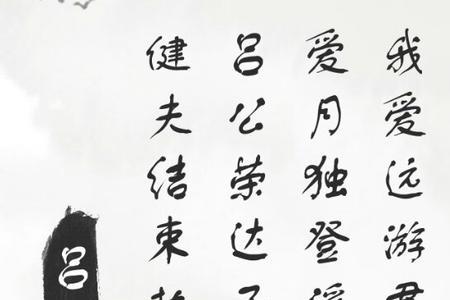 我爱远游君
爱月独登溪
吕公荣达子
健夫结束
吕